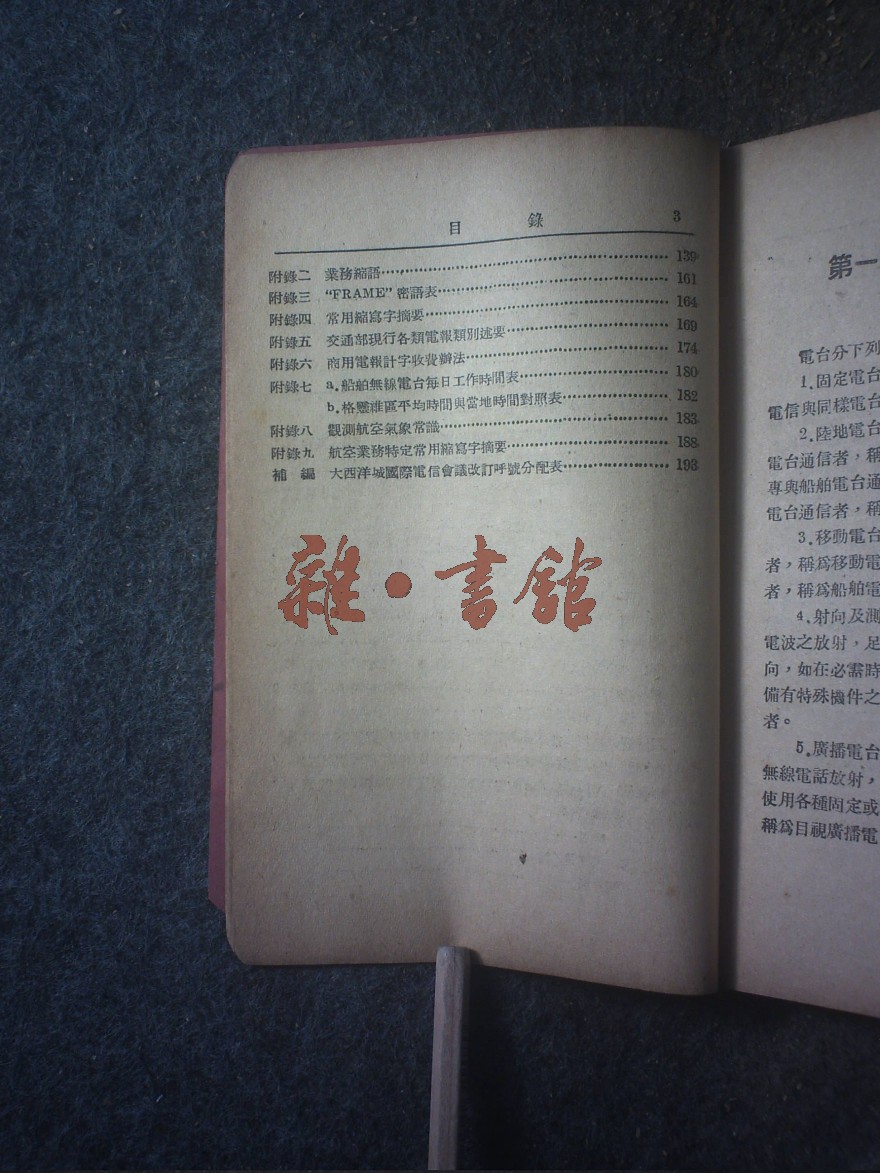 目 錄 3
附錄二 業務縮語……139
附錄三 “FRAME”密語表……161
附錄四 常用縮寫字摘要……164
附錄五 交通部現行各類電報類別述要……169
附錄六 商用電報計字收費辦法……174
附錄七 a.船舶無線電台每日工作時間表……180
b.格林維區平均時間與當地時間對照表……182
附錄八 觀測航空氣象常識……183
附錄九 航空業務特定常用縮寫字摘要……188
補編 大西洋城國際電信會議改訂呼號分配表……193
雜·書館
第一
電台分下列
1.固定電台
電信與同樣電台
2.陸地電台
電台通信者,稱
專與船舶電台通
電台通信者,稱
3.移動電台
者,稱爲移動電
者,稱爲船舶電
4.射向及測
電波之放射,足
向,如在必需時
備有特殊機件之
者。
5.廣播電台
無線電話放射,
使用各種固定或
稱爲目視廣播電